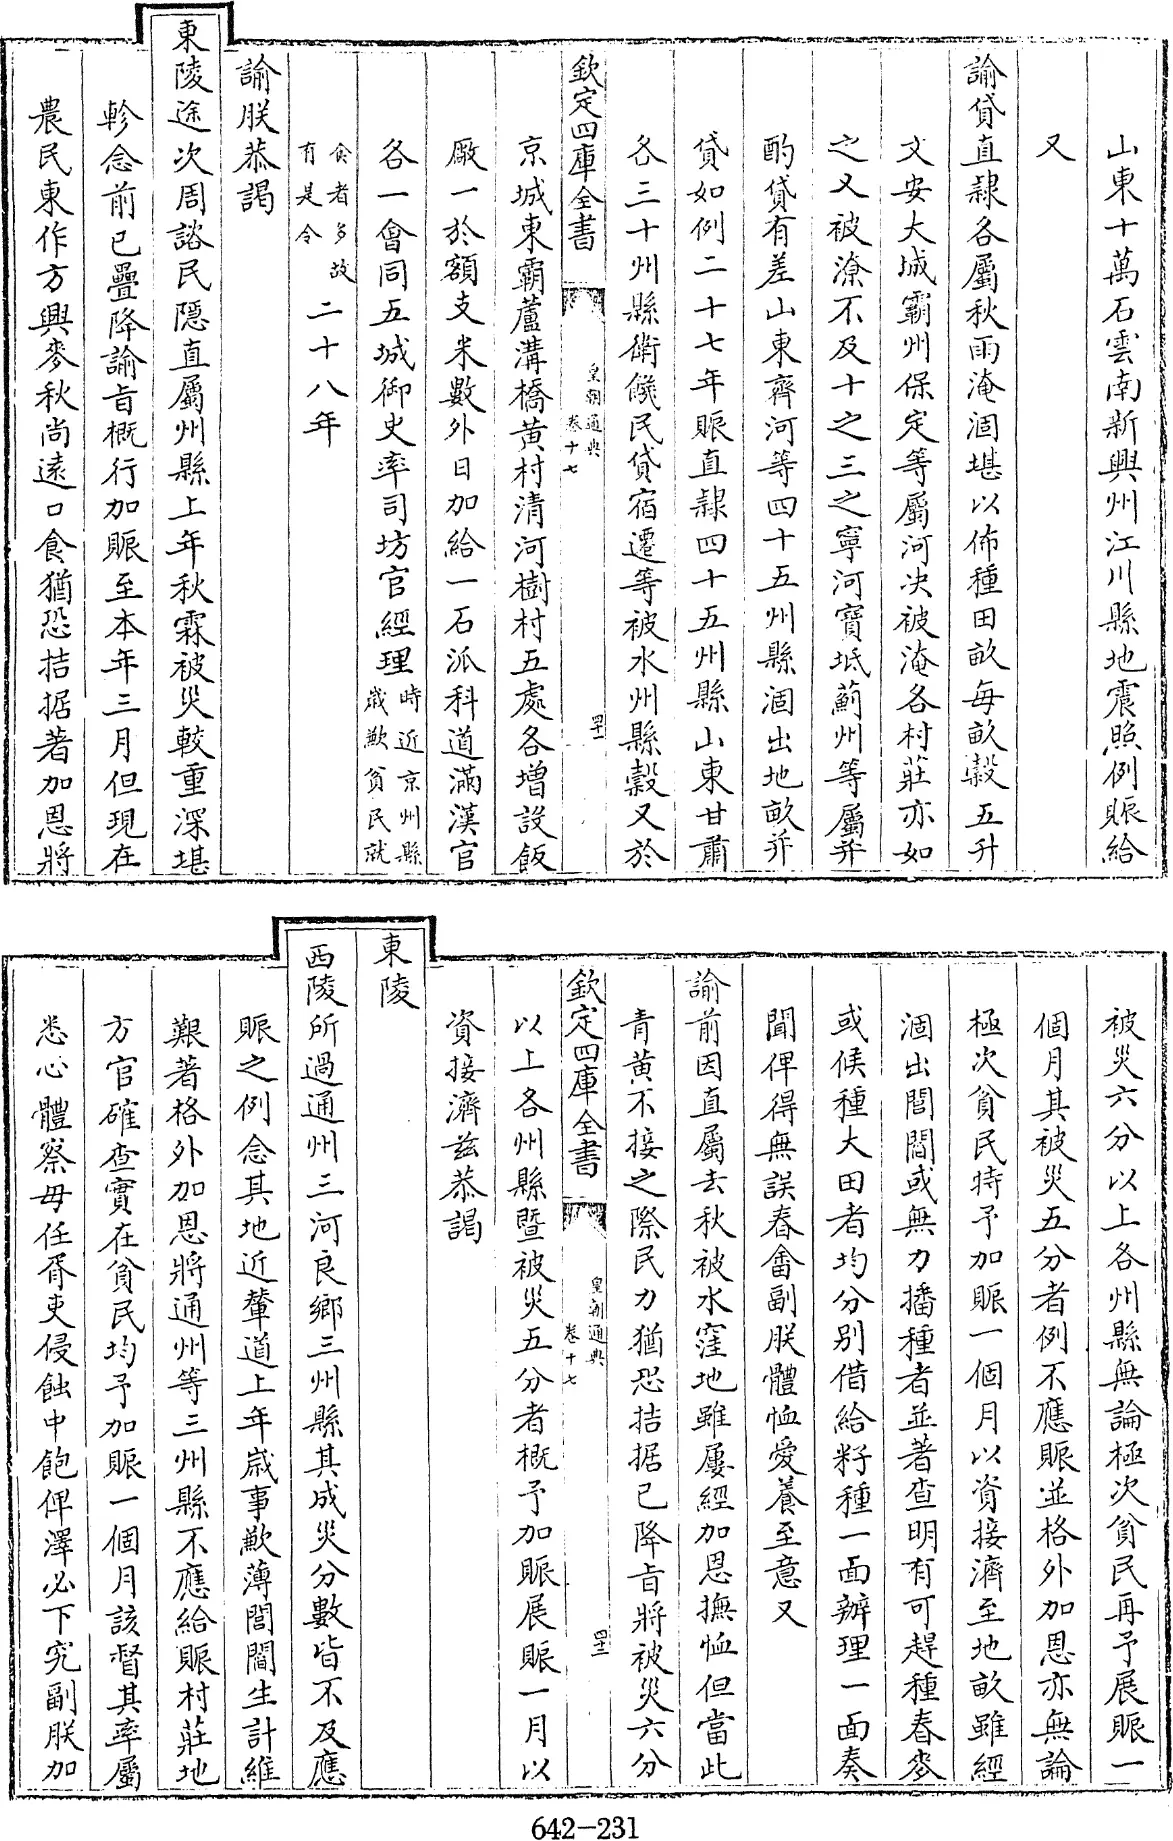 山東十萬石雲南新興州江川縣地震照例賑給
又
諭貸直隸各屬秋雨淹涸堪以佈種田畝每畝穀五升
文安大城霸州保定等屬河决被淹各村莊亦如
之又被潦不及十之三之寧河寶坻薊州等屬并
酌貸有差山東齊河等四十五州縣涸出地畝并
貸如例二十七年賑直隸四十五州縣山東甘肅
各三十州縣衛饑民貸宿遷等被水州縣穀又於
欽定四庫全書
皇朝通典
卷十七
四十一
京城東霸蘆溝橋黄村清河樹村五處各增設飯
厰一於額支米數外日加給一石派科道滿漢官
各一會同五城御史率司坊官經理時近京州縣歲歉貧民就
食者多故有是令二十八年
諭朕恭謁
東陵途次周諮民隱直屬州縣上年秋霖被災較重深堪
軫念前已疊降諭㫖概行加賑至本年三月但現在
農民東作方興麥秋尚遠口食猶恐拮据著加恩將
被災六分以上各州縣無論極次貧民再予展賑一
個月其被災五分者例不應賑並格外加恩亦無論
極次貧民特予加賑一個月以資接濟至地畝雖經
涸出閭閻或無力播種者並著查明有可趕種春麥
或候種大田者均分别借給籽種一面辦理一面奏
聞俾得無誤春畬副朕體恤愛養至意又
諭前因直屬去秋被水窪地雖屢經加恩撫恤但當此
青黄不接之際民力猶恐拮据已降㫖將被災六分
欽定四庫全書
皇朝通典
卷十七
四十二
以上各州縣暨被災五分者概予加賑展賑一月以
資接濟兹恭謁
東陵
西陵所過通州三河良鄉三州縣其成災分數皆不及應
賑之例念其地近輦道上年歲事歉薄閭閻生計維
艱著格外加恩將通州等三州縣不應給賑村莊地
方官確查實在貧民均予加賑一個月該督其率屬
悉心體察毋任胥吏侵蝕中飽俾澤必下究副朕加
642-231